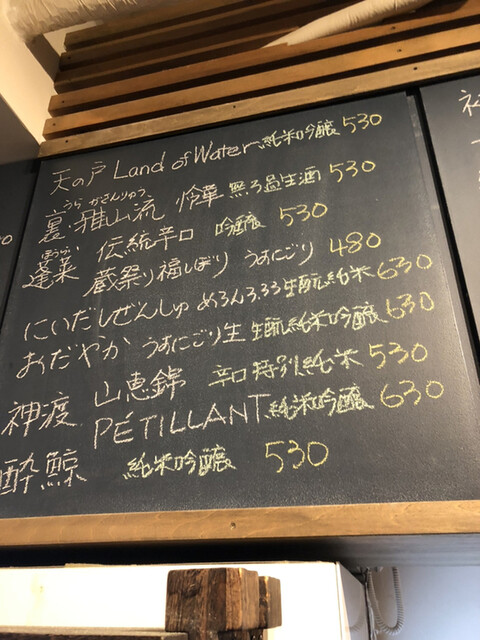 天の戸 Land of Water 純米吟醸 530
うら がさんりゅう
裏・雅山流 怜華 無ろ過生酒 530
ほうらい
蓬莱 伝統辛口 吟醸 530
蔵祭り福しぼり うすにごり 480
にいだしぜんしゅ めろん3.33 生酛純米 630
おだやか うすにごり生 生酛純米吟醸 630
神渡 山恵錦 辛口特別純米 530
PÉTILLANT 純米吟醸 630
酔鯨 純米吟醸 530